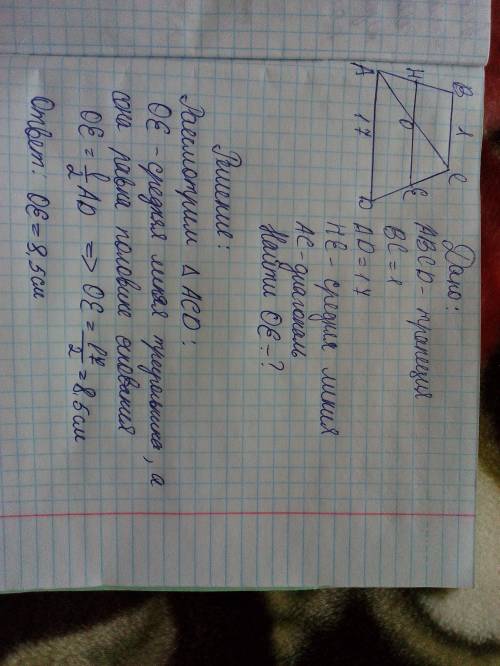 B 1 C
H O E
A 17 D
Дано:
ABCD - трапеция
BC = 1
AD = 17
HE - средняя линия
AC - диагональ
Найти OE - ?
Решение:
Рассмотрим △ ACD:
OE - средняя линия треугольника, а
она равна половине основания
OE = 1/2 AD => OE = 17/2 = 8,5 см
Ответ: OE = 8,5 см